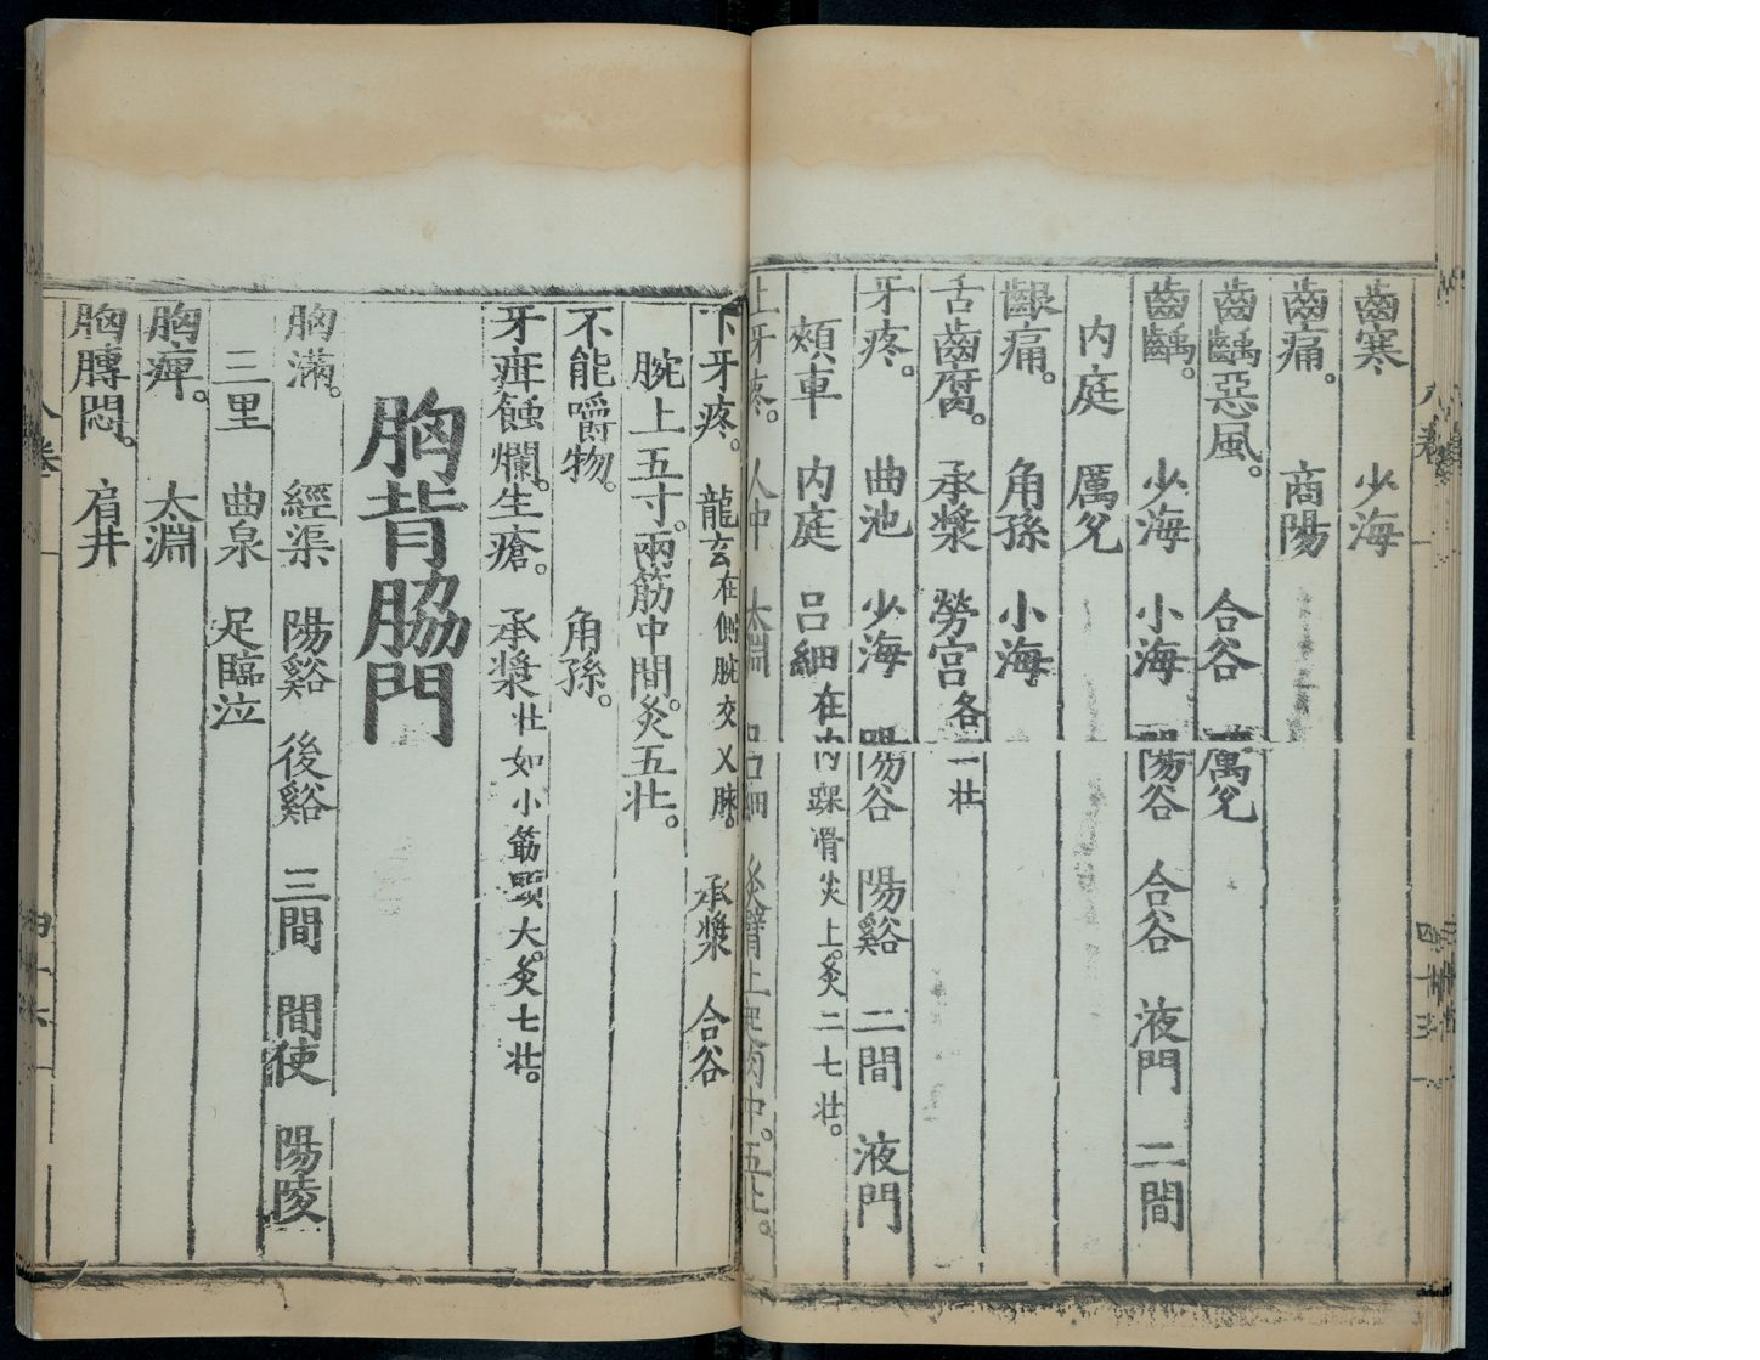 齒寒　少海
齒痛。　商陽
齒齲惡風。　合谷　厲兌
齒齲。　少海　小海　陽谷　合谷　液門　二間
内庭　厲兌
齦痛。　角孫　小海
舌齒腐。　承漿　勞宫各一壯
牙疼。　曲池　少海　陽谷　陽谿　二間　液門
頰車　内庭　呂細在内踝骨尖上。灸二七壯。
上牙疼。　人中　太淵　呂細　灸臂上起肉中。五壯。
下牙疼。　龍玄在側腕交叉脉。　承漿　合谷
腕上五寸。兩筋中間。灸五壯。
不能嚼物。　角孫。
牙疳蝕爛。生瘡。　承漿壯如小筯頭大。灸七壯。
胸背脇門
胸滿。　經渠　陽谿　後谿　三間　間使　陽陵
三里　曲泉　足臨泣
胸痺。　太淵
胸膊悶。　肩井